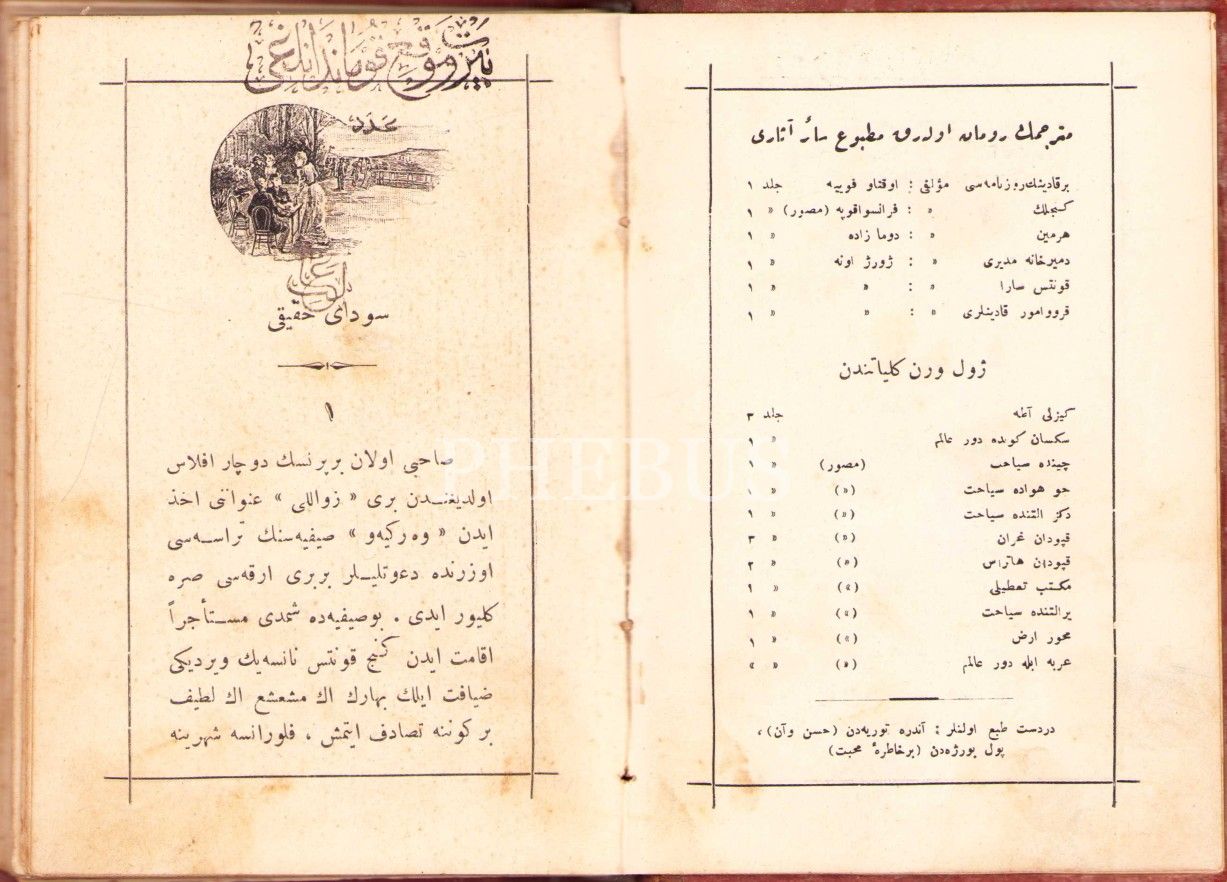 مترجمك رومان اولەرق مطبوع سائر آثاری
برقادینك روزنامەسی مؤلفی : اوقتاو فوییە جلد ١
كنجلك » : فرانسوا قوپە (مصور) » ١
هرمین » : دوما زادە » ١
دمیرخانە مدیری » : ژورژ اونە » ١
قونتس سارا » : » » ١
قرووامور قادینلری » : » » ١
ژول ورن كلیاتندن
كیزلی آطە جلد ٣
سكسان كوندە دور عالم » ١
چیندە سیاحت (مصور) » ١
جو هوادە سیاحت (») » ١
دكز التندە سیاحت (») » ١
قپودان غران (») » ٣
قپودان هاتراس (») » ٢
مكتب تعطیلی (») » ١
یرالتندە سیاحت (») » ١
محور ارض (») » ١
عربە ایلە دور عالم (») » »
دردست طبع اولنلر : آندرە توریەدن (حسن وآن) ،
پول بورژەدن (برخاطرۀ محبت)
بیروت موقع قوماندانلغی
عدد
سودای حقیقی
١
صاحبی اولان برپرنسك دوچار افلاس
اولدیغندن بری « زواللی » عنواننی اخذ
ایدن « وەركیەو » صیفیەسنك تراسەسی
اوزرندە دعوتلیلر بربری ارقەسی صرە
كلیور ایدی . بوصیفیەدە شمدی مستأجراً
اقامت ایدن كنج قونتس نانسەیك ویردیكی
ضیافت ایلك بهارك اك مشعشع اك لطیف
بر كوننە تصادف ایتمش ، فلورانسە شهرینە
PHEBUS